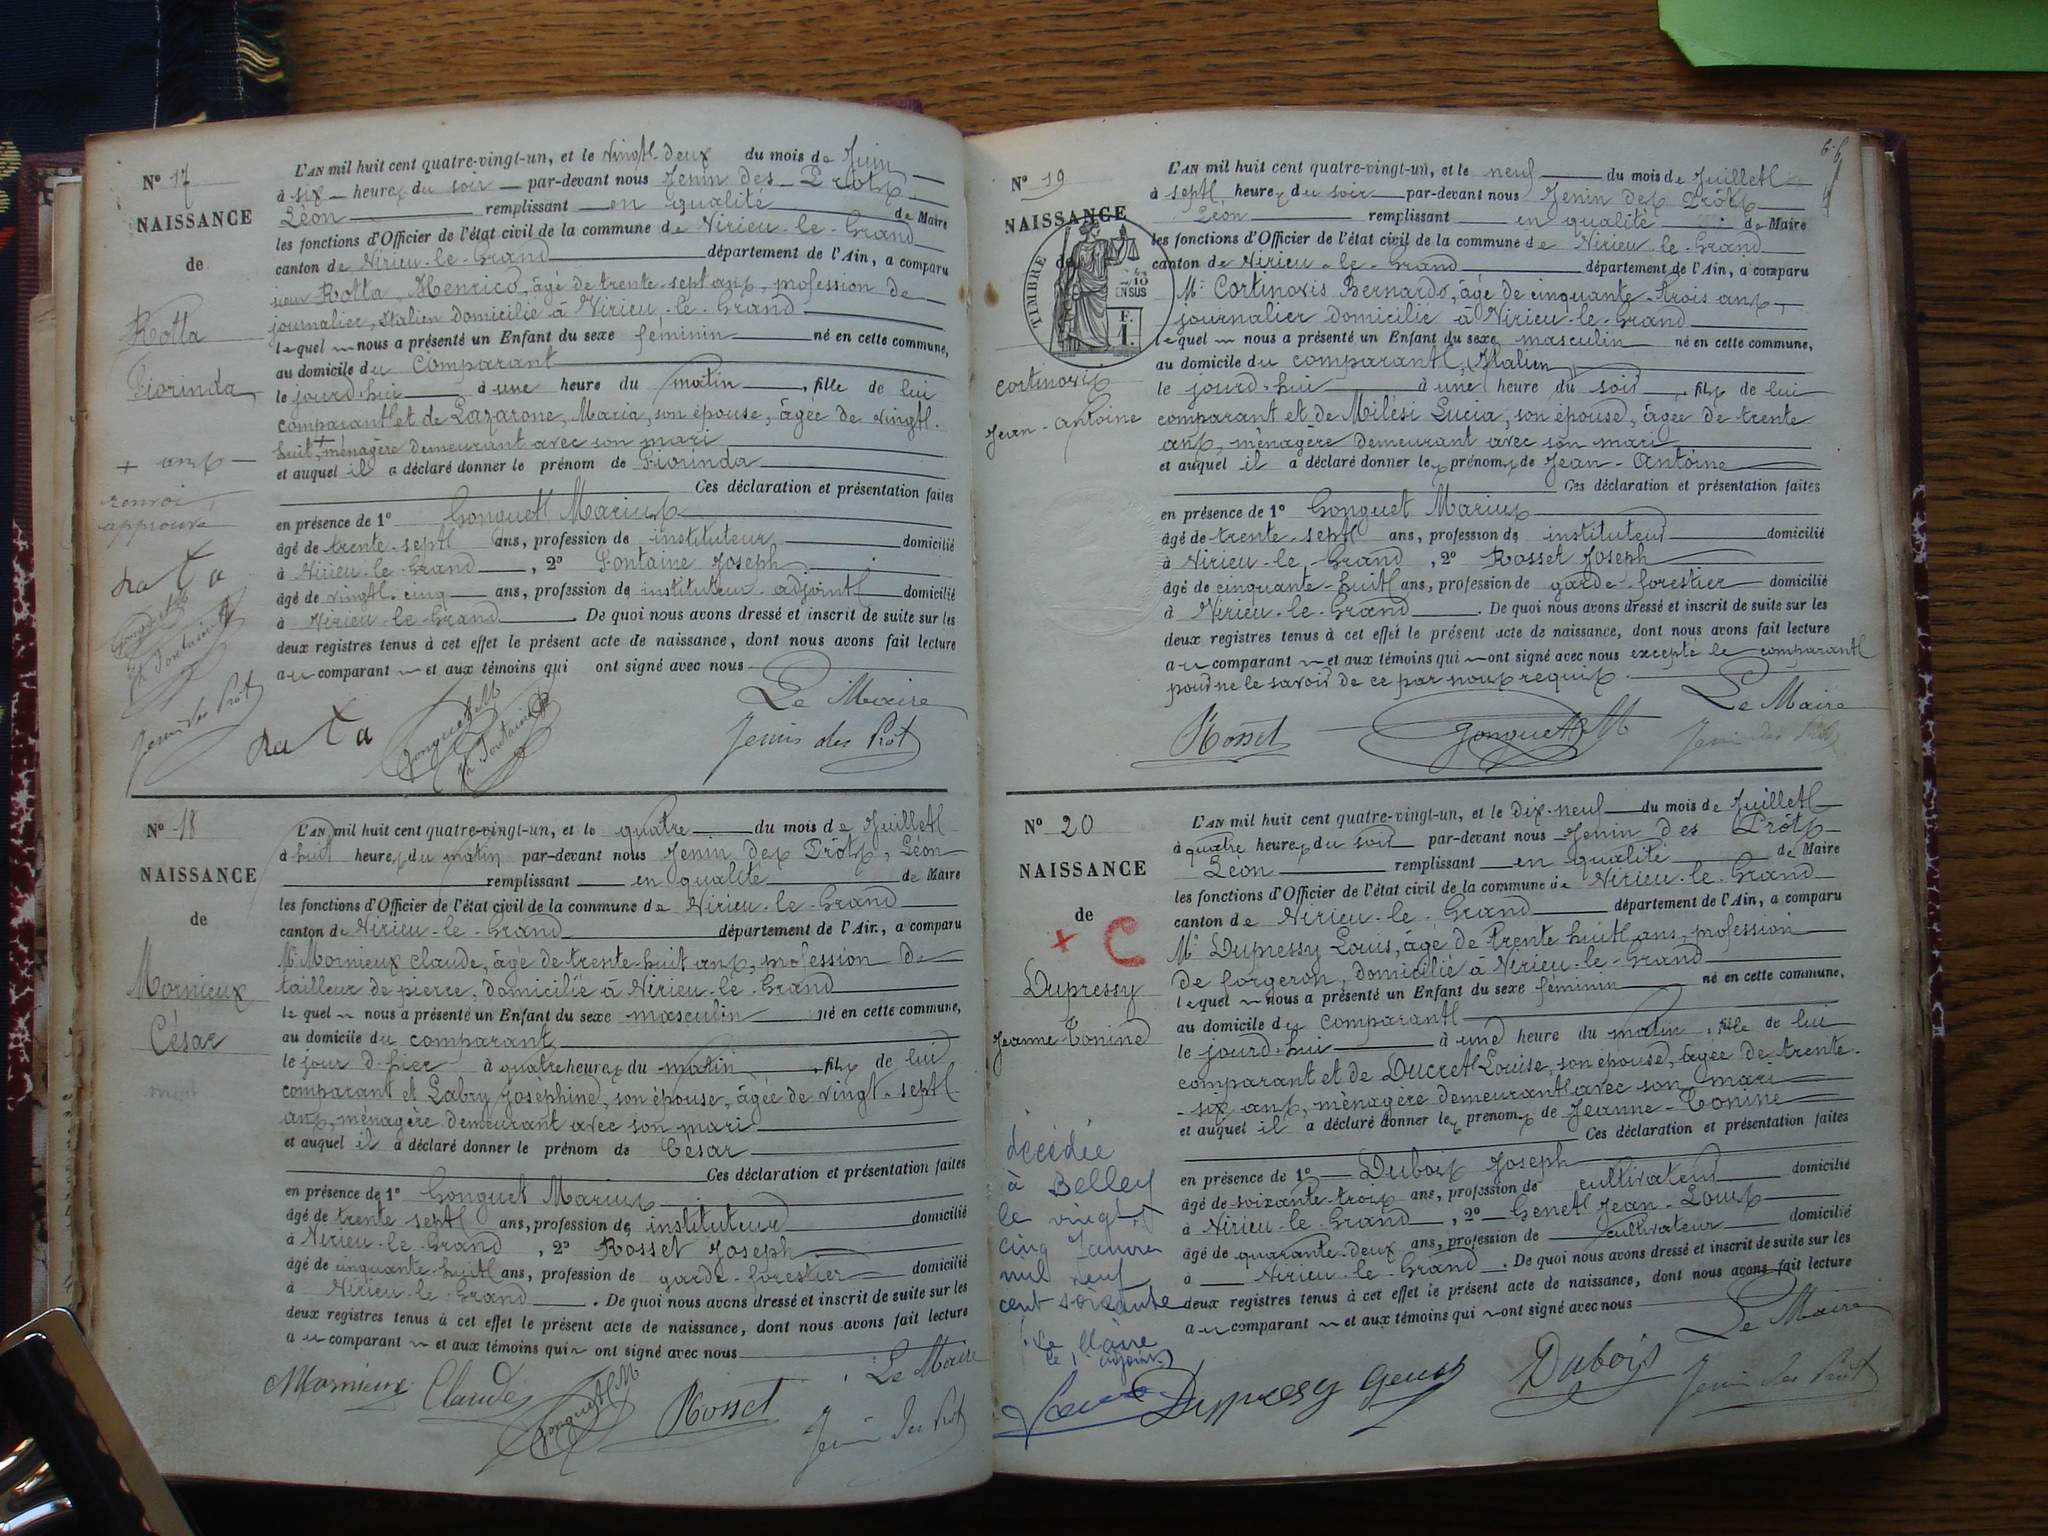 N° 17
NAISSANCE
de
Rotta
Fiorinda
+ ans
renvoi
approuvé
Rata
Jenin des Prot
L'AN mil huit cent quatre-vingt-un, et le vingt-deux du mois de Juin
à six heures du soir par-devant nous Jenin des Prôts
Léon remplissant en qualité de Maire
les fonctions d'Officier de l'état civil de la commune de Virieu-le-Grand
canton de Virieu-le-Grand département de l'Ain, a comparu
sieur Rotta, Henrico, âgé de trente-sept ans, profession de
journalier, Italien domicilié à Virieu-le-Grand
lequel nous a présenté un Enfant du sexe féminin né en cette commune,
au domicile du Comparant
le jourd'hui à une heure du matin, fille de lui
comparant et de Lazarone, Maria, son épouse, âgée de vingt-
huit + ménagère demeurant avec son mari
et auquel il a déclaré donner le prénom de Fiorinda
Ces déclaration et présentation faites
en présence de 1° Gonguet Marius
âgé de trente-sept ans, profession de instituteur domicilié
à Virieu-le-Grand, 2° Fontaine Joseph
âgé de vingt-cinq ans, profession de instituteur-adjoint domicilié
à Virieu-le-Grand. De quoi nous avons dressé et inscrit de suite sur les
deux registres tenus à cet effet le présent acte de naissance, dont nous avons fait lecture
au comparant et aux témoins qui ont signé avec nous
Le Maire
Rata Gonguet M Fontaine Jenin des Prot
N° 18
NAISSANCE
de
Mornieux
César
mort
L'AN mil huit cent quatre-vingt-un, et le quatre du mois de Juillet
à huit heures du matin par-devant nous Jenin des Prôts, Léon
remplissant en qualité de Maire
les fonctions d'Officier de l'état civil de la commune de Virieu-le-Grand
canton de Virieu-le-Grand département de l'Ain, a comparu
Mr Mornieux Claude, âgé de trente-huit ans, profession de
tailleur de pierre, domicilié à Virieu-le-Grand
lequel nous a présenté un Enfant du sexe masculin né en cette commune,
au domicile du comparant
le jour d'hier à quatre heures du matin, fils de lui
comparant et Labry Joséphine, son épouse, âgée de vingt-sept
ans, ménagère demeurant avec son mari
et auquel il a déclaré donner le prénom de César
Ces déclaration et présentation faites
en présence de 1° Gonguet Marius
âgé de trente sept ans, profession de instituteur domicilié
à Virieu-le-Grand, 2° Rosset Joseph
âgé de cinquante-huit ans, profession de garde-forestier domicilié
à Virieu-le-Grand. De quoi nous avons dressé et inscrit de suite sur les
deux registres tenus à cet effet le présent acte de naissance, dont nous avons fait lecture
au comparant et aux témoins qui ont signé avec nous
Le Maire
Mornieux Claude Gonguet M Rosset Jenin des Prot
N° 19
NAISSANCE
de
TIMBRE
2/10
EN SUS
F.
1.
Cortinovis
Jean-Antoine
L'AN mil huit cent quatre-vingt-un, et le neuf du mois de Juillet
à sept heures du soir par-devant nous Jenin des Prôts
Léon remplissant en qualité de Maire
les fonctions d'Officier de l'état civil de la commune de Virieu-le-Grand
canton de Virieu-le-Grand département de l'Ain, a comparu
Mr Cortinovis Bernardo, âgé de cinquante-trois ans,
journalier domicilié à Virieu-le-Grand
lequel nous a présenté un Enfant du sexe masculin né en cette commune,
au domicile du comparant, Italien
le jourd'hui à une heure du soir, fils de lui
comparant et de Milési Lucia, son épouse, âgée de trente
ans, ménagère demeurant avec son mari
et auquel il a déclaré donner les prénoms de Jean-Antoine
Ces déclaration et présentation faites
en présence de 1° Gonguet Marius
âgé de trente-sept ans, profession de instituteur domicilié
à Virieu-le-Grand, 2° Rosset Joseph
âgé de cinquante-huit ans, profession de garde-forestier domicilié
à Virieu-le-Grand. De quoi nous avons dressé et inscrit de suite sur les
deux registres tenus à cet effet le présent acte de naissance, dont nous avons fait lecture
au comparant et aux témoins qui ont signé avec nous excepté le comparant
pour ne le savoir de ce par nous requis.
Le Maire
Rosset Gonguet M Jenin des Prot
N° 20
NAISSANCE
de
+ C
Dupressy
Jeanne-Tonine
décédée
à Belley
le vingt
cinq Janvier
mil neuf
cent soixante
Le Maire
le 1er adjoint
L'AN mil huit cent quatre-vingt-un, et le dix-neuf du mois de Juillet
à quatre heures du soir par-devant nous Jenin des Prôts
Léon remplissant en qualité de Maire
les fonctions d'Officier de l'état civil de la commune de Virieu-le-Grand
canton de Virieu-le-Grand département de l'Ain, a comparu
Mr Dupressy Louis, âgé de trente huit ans, profession
de forgeron, domicilié à Virieu-le-Grand
lequel nous a présenté un Enfant du sexe féminin né en cette commune,
au domicile du comparant
le jourd'hui à une heure du matin, fille de lui
comparant et de Ducret Louise, son épouse, âgée de trente-
-six ans, ménagère demeurant avec son mari
et auquel il a déclaré donner les prénoms de Jeanne-Tonine
Ces déclaration et présentation faites
en présence de 1° Dubois Joseph
âgé de soixante-trois ans, profession de cultivateur domicilié
à Virieu-le-Grand, 2° Genet Jean-Louis
âgé de quarante-deux ans, profession de cultivateur domicilié
à Virieu-le-Grand. De quoi nous avons dressé et inscrit de suite sur les
deux registres tenus à cet effet le présent acte de naissance, dont nous avons fait lecture
au comparant et aux témoins qui ont signé avec nous
Le Maire
Dupressy Genet Dubois Jenin des Prot